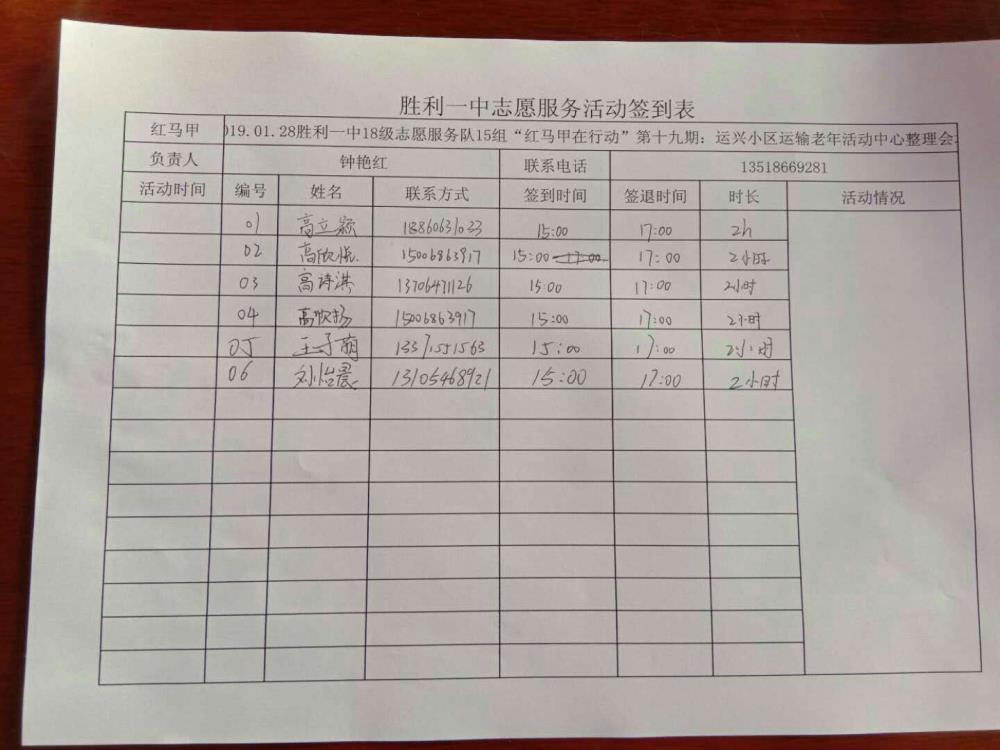 胜利一中志愿服务活动签到表
红马甲 019.01.28胜利一中18级志愿服务队15组“红马甲在行动”第十九期：运兴小区运输老年活动中心整理会
负责人 钟艳红 联系电话 13518669281
活动时间 编号 姓名 联系方式 签到时间 签退时间 时长 活动情况
01 高立颖 18860631033 15:00 17:00 2h
02 高欣悦 15006863917 15:00 17:00 17:00 2小时
03 高诗淇 13706471126 15:00 17:00 2小时
04 高欣扬 15006863917 15:00 17:00 2小时
05 王子萌 13371551563 15:00 17:00 2小时
06 刘怡晨 13105468921 15:00 17:00 2小时